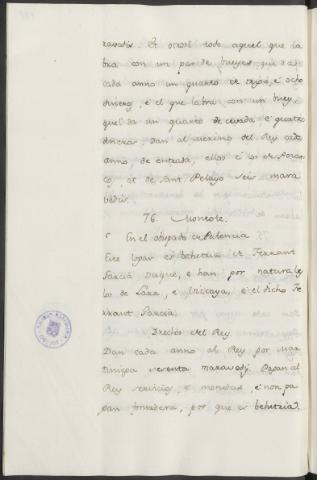 ravedis. Et otrosi todo aquel que la
bra con un par de bueyes, que da
cada anno un quarto de trigo, e ocho
dineros, e el que labra con un buey,
quel da un quarto de cevada, e quatro
dineros, dan al merino del Rey cada
anno de entrada, ellos e los de
et de Sant Pelayo seis mara
vedis.
76. Monzote.
En el obispado de Palencia
Este logar es behetria de Ferrant
Garcia Duque, e han por natural
los de Lara, e Vizcaya, e el dicho Fe
rrant Garcia.
Drechos del Rey
Dan cada anno al Rey por Mar
tiniega sesenta maravedis. Pagan al
Rey servicios, e monedas, e non pa
gan fonsadera, por que es behetria.